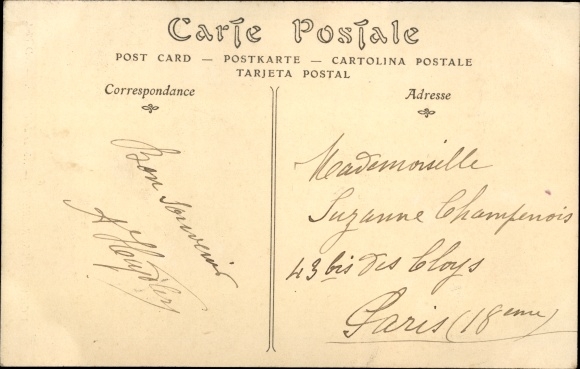 Carte Postale
POST CARD — POSTKARTE — CARTOLINA POSTALE
TARJETA POSTAL
Correspondance
Bon souvenir
Adresse
Mademoiselle
Suzanne Champenois
43 bis des Cloys
Paris (18eme)